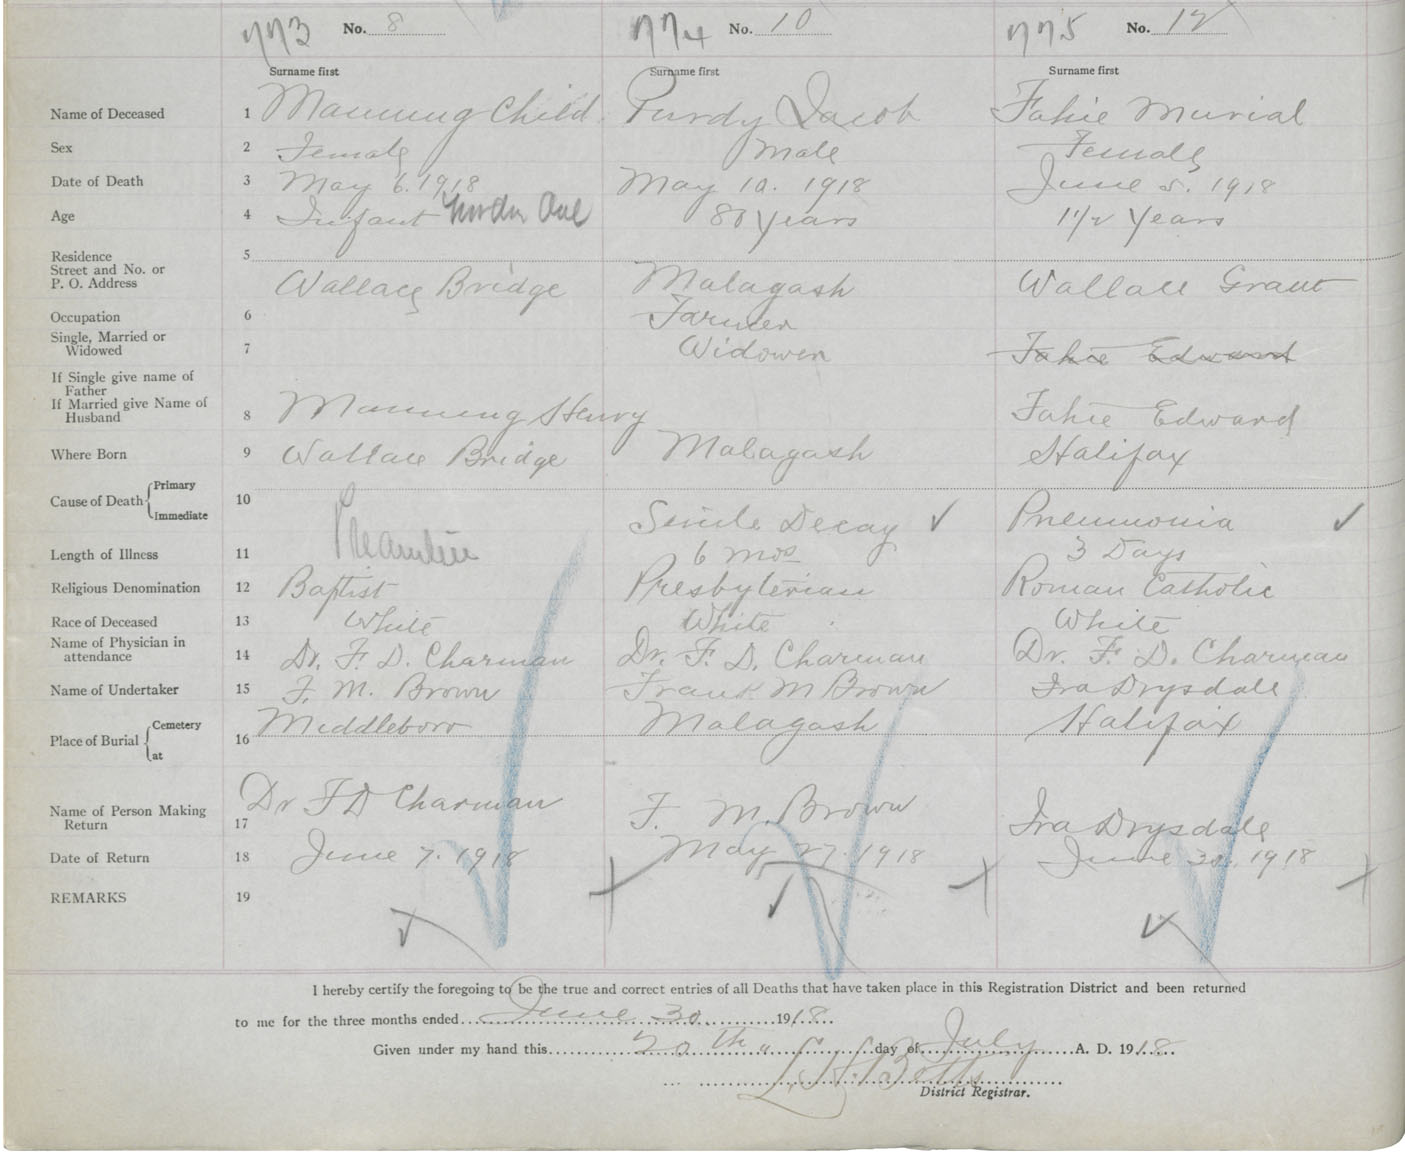 773 No. 8 774 No. 10 775 No. 12
Surname first Surname first Surname first
Name of Deceased 1 Manning Child Purdy Jacob Fahie Murial
Sex 2 Female Male Female
Date of Death 3 May 6. 1918 May 10. 1918 June 5. 1918
Age 4 Infant Under One 80 Years 1 1/2 Years
Residence 5
Street and No. or
P. O. Address Wallace Bridge Malagash Wallace Grant
Occupation 6 Farmer
Single, Married or
Widowed 7 Widower Fahie Edward
If Single give name of
Father
If Married give Name of
Husband 8 Manning Henry Fahie Edward
Where Born 9 Wallace Bridge Malagash Halifax
Cause of Death Primary 10
Immediate Senile Decay ✓ Pneumonia ✓
Length of Illness 11 6 mos 3 Days
Religious Denomination 12 Baptist Presbyterian Roman Catholic
Race of Deceased 13 White White White
Name of Physician in
attendance 14 Dr. F. D. Charman Dr. F. D. Charman Dr. F. D. Charman
Name of Undertaker 15 F. M. Brown Frank M Brown Ira Drysdale
Place of Burial Cemetery 16 Middleboro Malagash Halifax
at
Name of Person Making
Return 17 Dr F D Charman F. M. Brown Ira Drysdale
Date of Return 18 June 7. 1918 May 27. 1918 June 30. 1918
REMARKS 19
I hereby certify the foregoing to be the true and correct entries of all Deaths that have taken place in this Registration District and been returned
to me for the three months ended June 30 1918
Given under my hand this 20th day of July A. D. 1918
L. H. Betts
District Registrar.